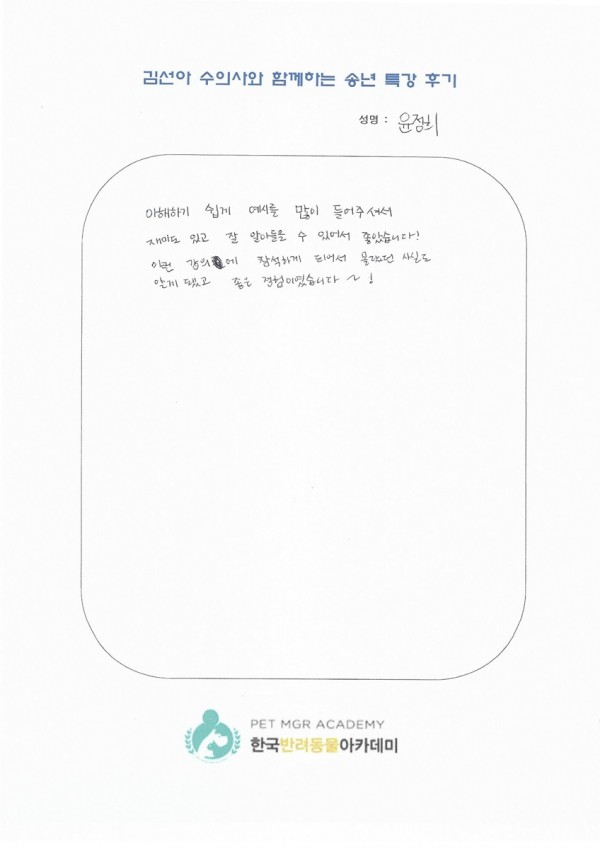 김선아 수의사와 함께하는 송년 특강 후기
성명 : 윤점희
이해하기 쉽게 예시를 많이 들어주셔서
재미도 있고 잘 알아들을 수 있어서 좋았습니다!
이런 강의에 참석하게 되어서 몰랐던 사실도
알게 됐고 좋은 경험이였습니다 ~ !
PET MGR ACADEMY
한국반려동물아카데미